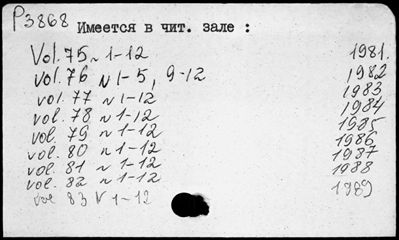 Р3868
Имеется в чит. зале :
Vol. 75 N 1-12 1981.
vol. 76 N 1-5, 9-12 1982
vol. 77 N 1-12 1983
vol. 78 N 1-12 1984
vol. 79 N 1-12 1985
vol. 80 N 1-12 1986
vol. 81 N 1-12 1987
vol. 82 N 1-12 1988
vol 83 N 1-12 1989